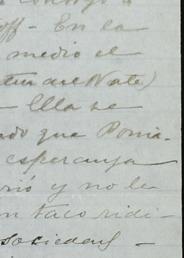 off - En la
medio el
del Norte)
- Ella se
ndo que Poma-
esperanza
rió y no le
n taco ridi-
sociedad -